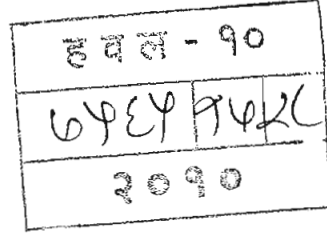 हवल - १०
७५६५ १५ २८
२०१०